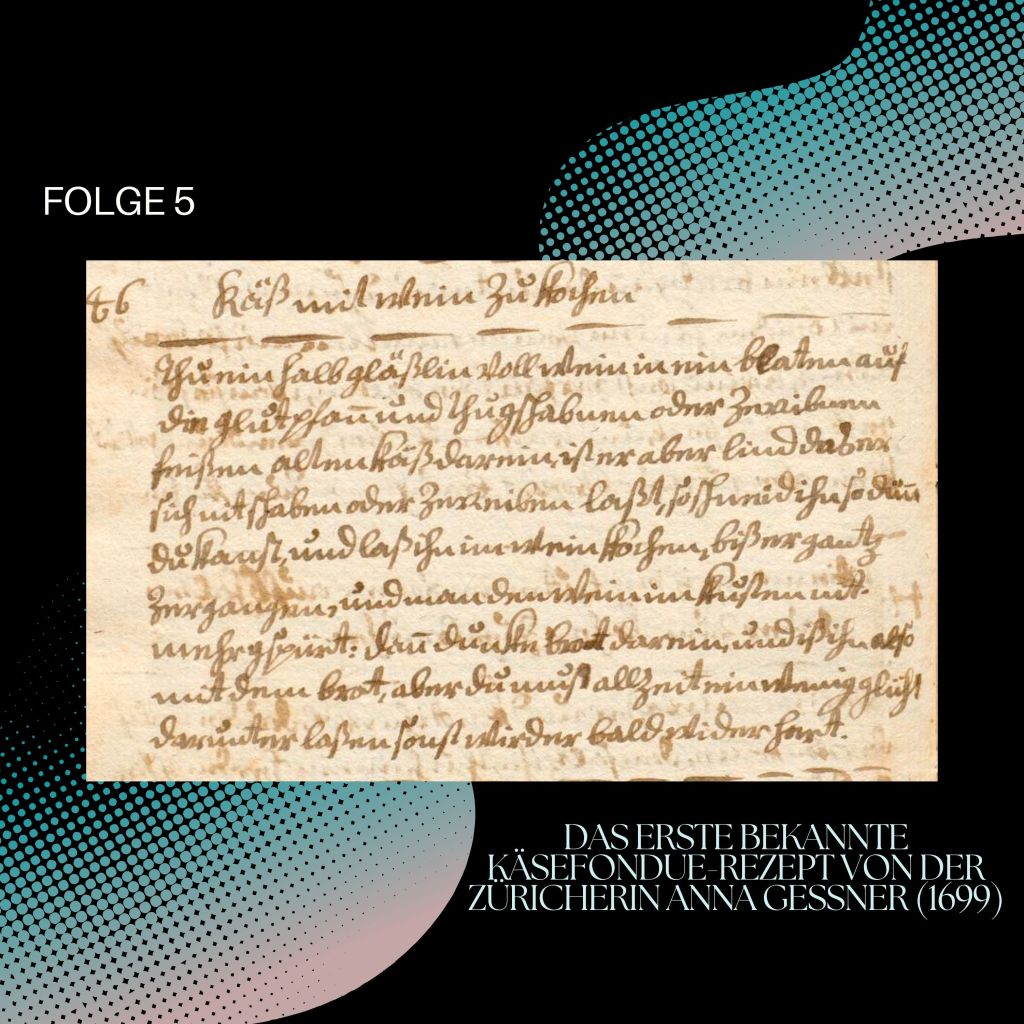 FOLGE 5
46 Käß mit wein Zu kochen
Thu ein halb gläßlin voll wein in ein blaten auf
die glutpfan̄ und thu gschabnen oder Zeribnen
feißen alten käß darein, ist er aber lind das er
sich nit schaben oder Zerreiben laßt, so schneid ihn so dün̄
du kanst, und laß ihn im wein kochen, biß er gantz
Zergangen, und man den wein im kusten nit
mehr gspürt: dan̄ dunke brot darein, und iß ihn also
mit dem brot, aber du must allZeit ein wenig glücht
darunter laßen sonst wird er bald wider hart.
DAS ERSTE BEKANNTE
KÄSEFONDUE-REZEPT VON DER
ZÜRICHERIN ANNA GESSNER (1699)